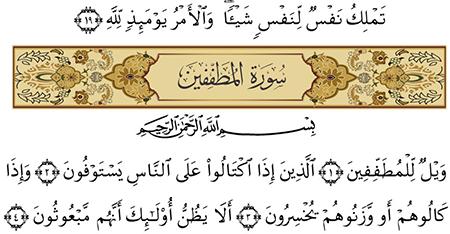 تَمْلِكُ نَفْسٌ لِّنَفْسٍ شَيْـًٔا ۖ وَالْأَمْرُ يَوْمَئِذٍ لِّلَّهِ ﴿١٩﴾
سُورَةُ الْمُطَفِّفِينَ
بِسْمِ اللَّهِ الرَّحْمَٰنِ الرَّحِيمِ
وَيْلٌ لِّلْمُطَفِّفِينَ ﴿١﴾ الَّذِينَ إِذَا اكْتَالُوا۟ عَلَى النَّاسِ يَسْتَوْفُونَ ﴿٢﴾ وَإِذَا
كَالُوهُمْ أَو وَّزَنُوهُمْ يُخْسِرُونَ ﴿٣﴾ أَلَا يَظُنُّ أُو۟لَٰٓئِكَ أَنَّهُم مَّبْعُوثُونَ ﴿٤﴾